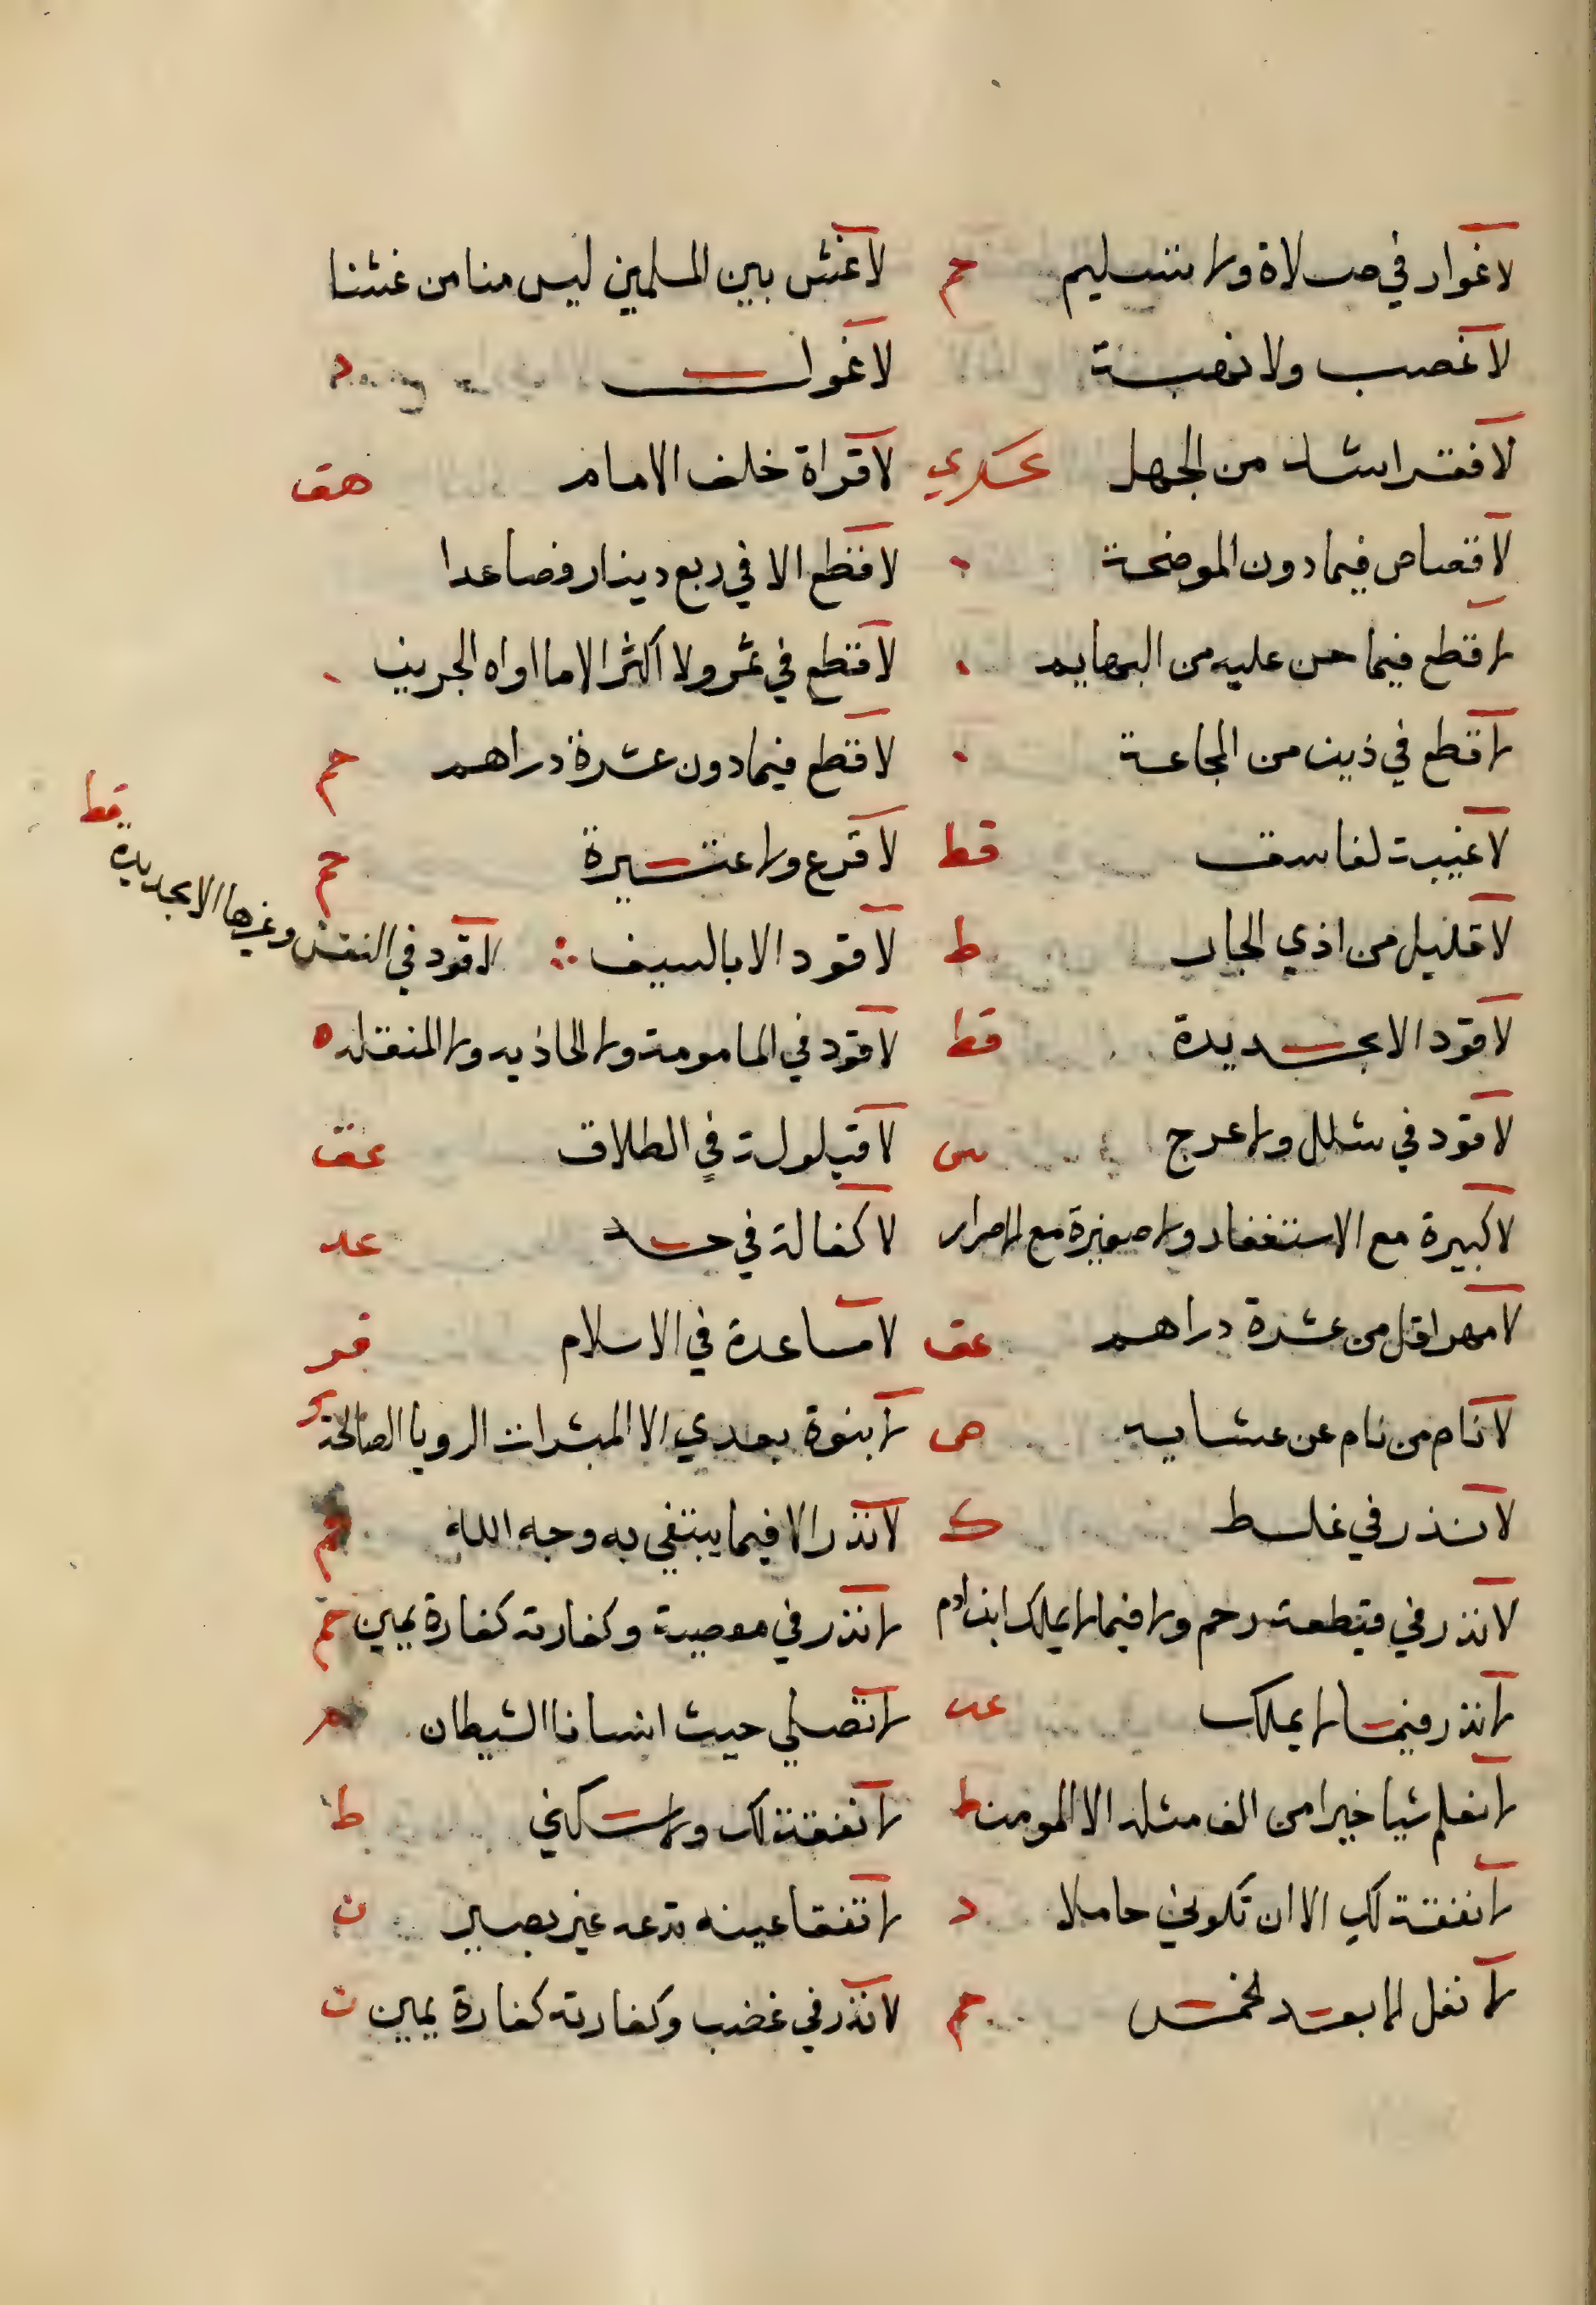 لا غوار في صلاة ولا تسليم حم لا غش بين المسلمين ليس منا من غشنا
لا غصب ولا نهبة لا غول د
لا فقر اشد من الجهل عسكري لا قراة خلف الامام هق
لا قصاص فيما دون الموضحة لا قطع الا في ربع دينار فصاعدا
لا قطع فيما حس عليه من البهايم لا قطع في ثمر ولا اكثر الا ما اواه الجرين
لا قطع في زمن المجاعة لا قطع فيما دون عشرة دراهم حم
لا غيبة لفاسق قط لا قرع ولا عتيرة حم
لا قليل من اذي الجار ط لا قود الا بالسيف لا قود في النفس وغيرها الا بحديدة قط
لا قود الا بحديدة قط لا قود في المامومة ولا الحاذيه ولا المنقله ه
لا قود في شلل ولا عرج لا قيلولة في الطلاق عق
لا كبيرة مع الاستغفار ولا صغيرة مع الاصرار لا كفالة في حد عد
لا مهر اقل من عشرة دراهم عق لا مساعدة في الاسلام
لا نام من نام عن عشايه لا بنوة بعدي الا المبشرات الرويا الصالحة
لا نذر في غلط ك لا نذر الا فيما يبتغي به وجه الله حم
لا نذر في قيطعة رحم ولا فيما لا يملك ابن ادم لا نذر في معصية وكفارته كفارة يمين حم
لا نذر فيما لا يملك عد لا تصلي حيث انسانا الشيطان
لا نعلم شيا خيرا من الف مثله الا المومن ط لا نفقة لك ولا سكني ط
لا نفقة لك الا ان تكوني حاملا د لا تفقا عينه تدعه غير بصير ن
لا نفل الا بعد الخمس حم لا نذر في غضب وكفارته كفارة يمين ن